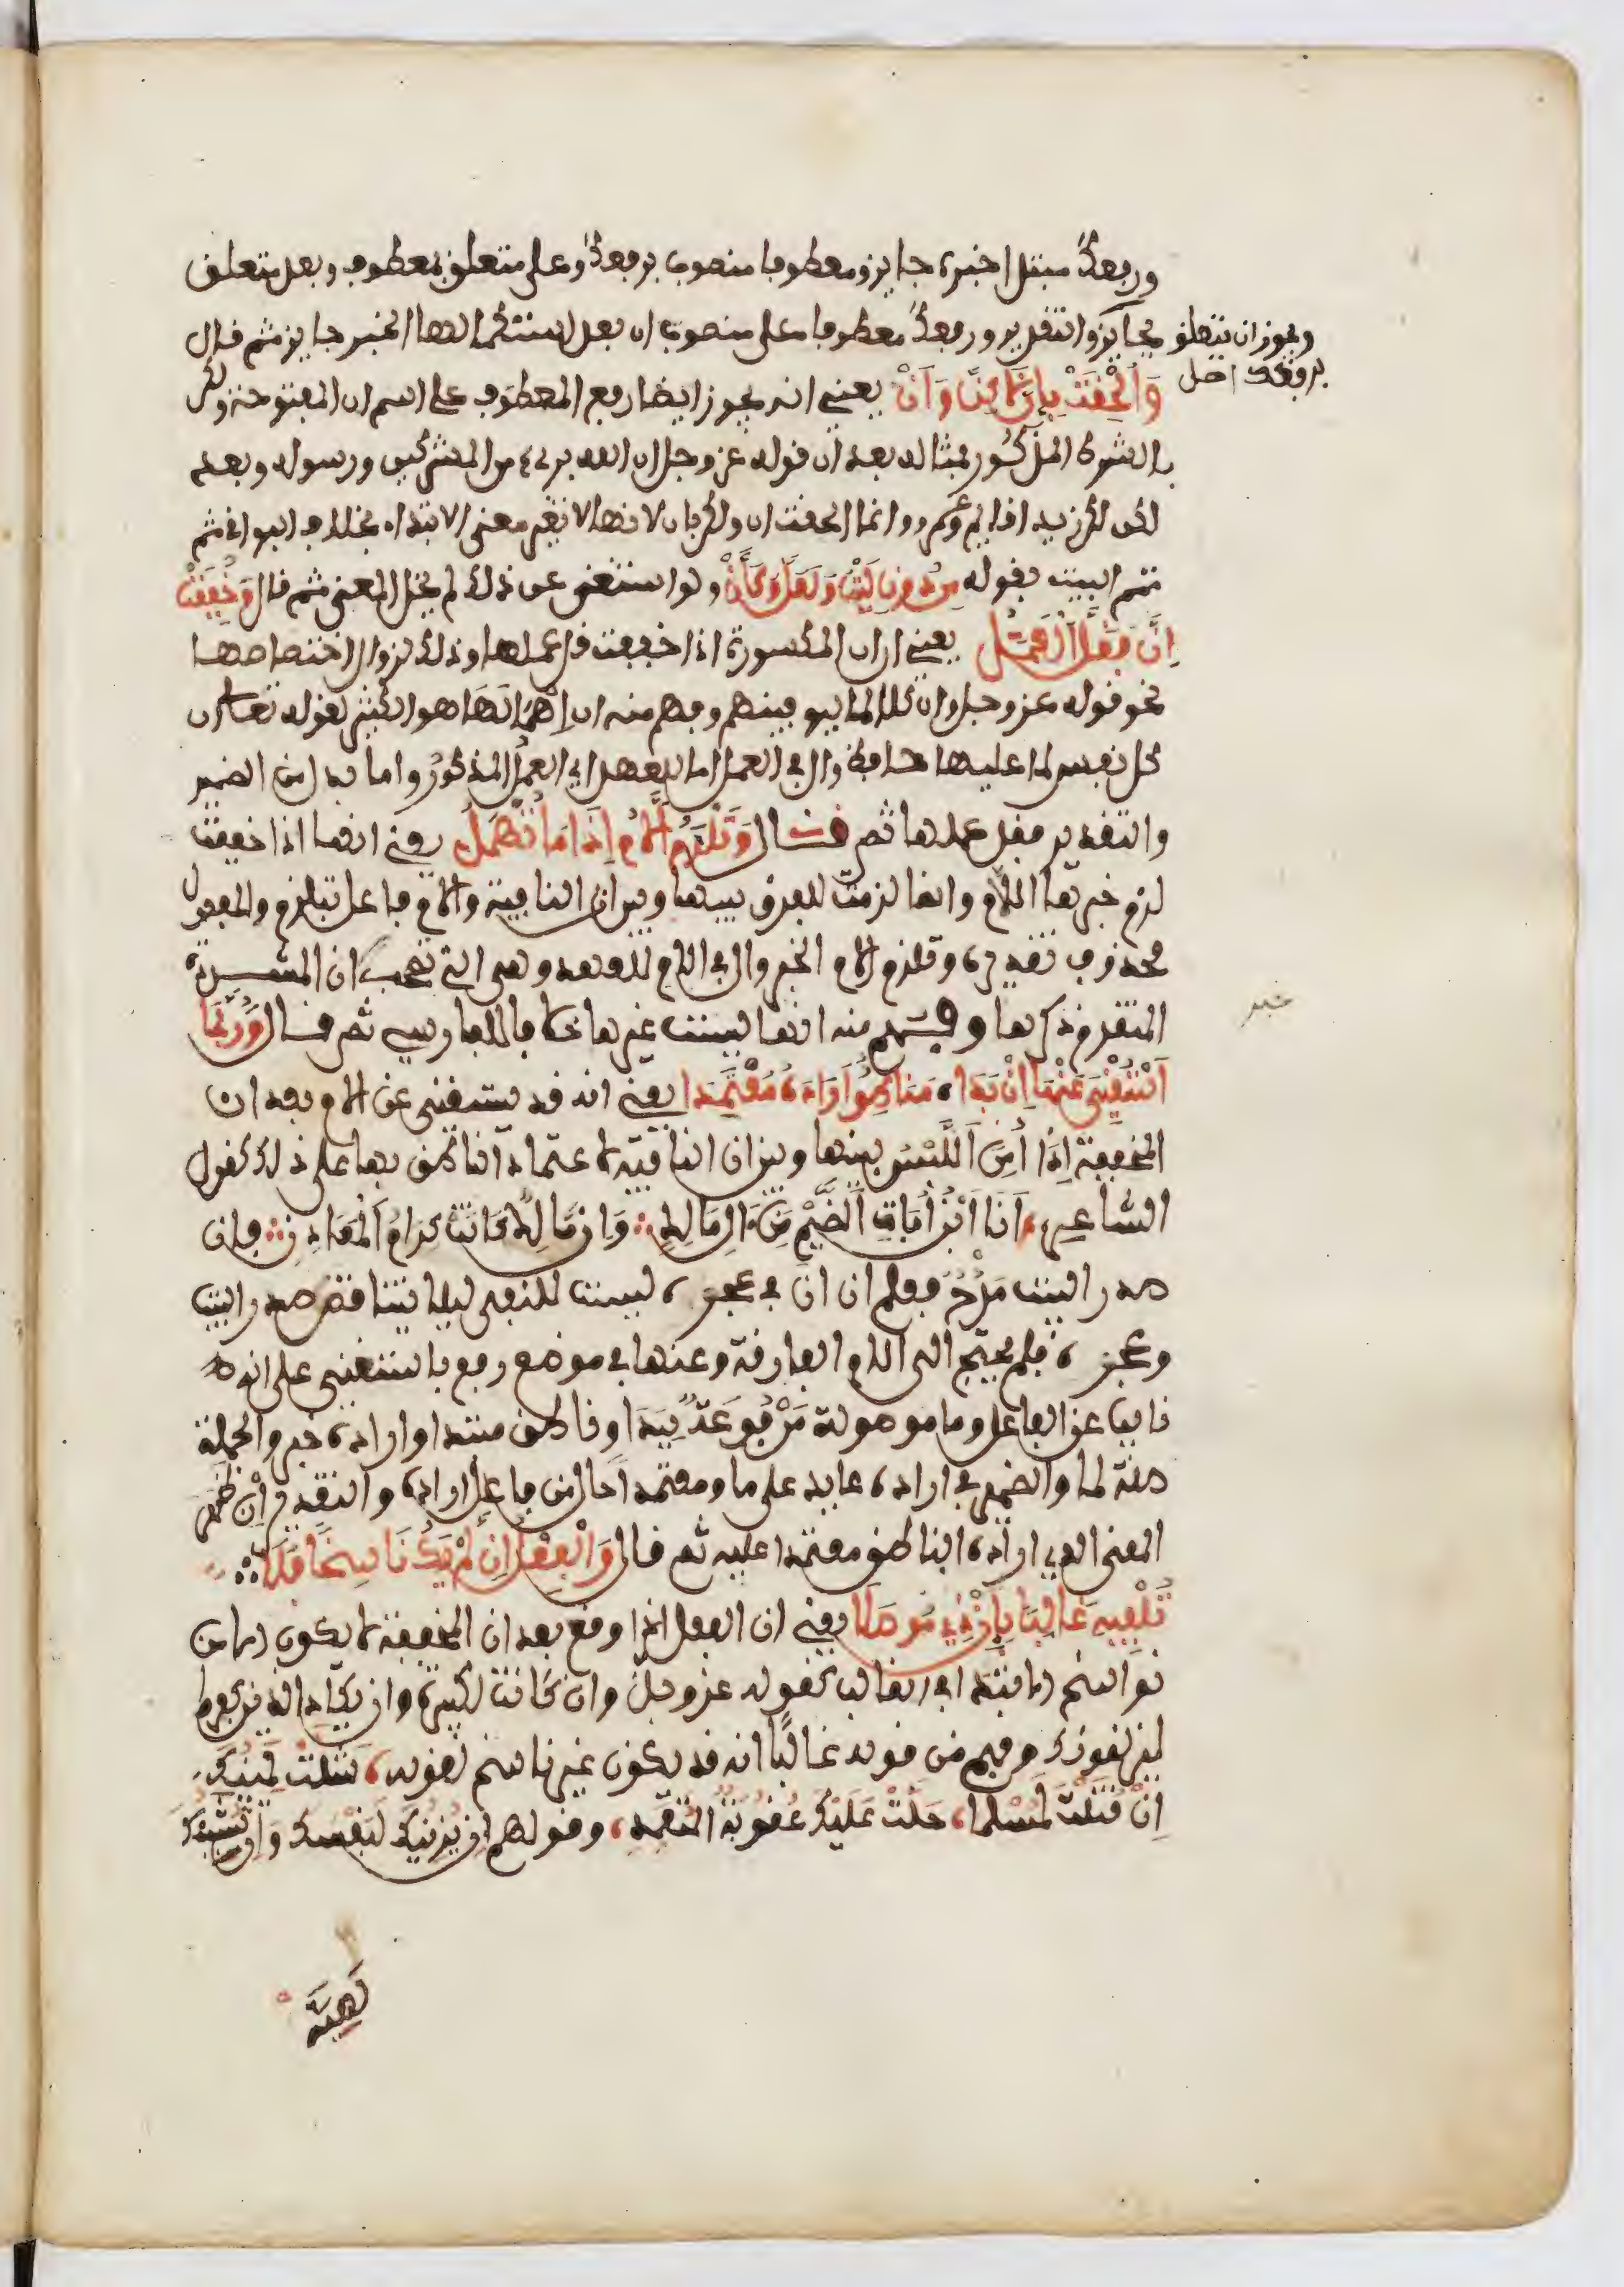 ورفعك مبتدا خبره جايز ومعطوفا منصوب برفعك وعلى متعلق بمعطوف وبعد متعلق
بجايز والتقدير ورفعك معطوفا على منصوب ان بعد استكمالها الخبر جايز ثم قال
ويجوز ان يتعلق
برفعك اصل
وَأُلْحِقَتْ بِإِنَّ لَكِنَّ وَأَنْ يعني انه يجوز ايضا رفع المعطوف على اسم ان المفتوحة ولكن
بالشرط المذكور فمثاله بعد ان قوله عز وجل ان الله بريء من المشركين ورسوله وبعد
لكن لكن زيد قايم وعمرو وانما الحقت ان ولكن بان لانها لا تغير معنى الابتداء بخلاف البواقي ثم
تمم البيت بقوله مِن دُونِ لَيْتَ وَلَعَلَّ وَكَأَنْ ولو استغنى عن ذلك لم يخل المعنى ثم قال وَخُفِّفَتْ
إِنَّ فَقَلَّ الْعَمَلُ يعني ان ان المكسورة اذا خففت قل عملها وذلك لزوال اختصاصها
نحو قوله عز وجل وان كلا لما ليوفينهم وفهم منه ان إهمالها هو الكثير كقوله تعالى ان
كل نفس لما عليها حافظ وال في العمل اما للعهد اي العمل المذكور واما بدل من الضمير
والتقدير فقل عملها ثم قال وَتَلْزَمُ اللَّامُ إِذَا مَا تُهْمَلُ يعني انها اذا خففت
لزم خبرها اللام وانما لزمت للفرق بينها وبين ان النافية واللام فاعل بتلزم والمفعول
محذوف تقديره وتلزم اللام الخبر وال في اللام للعهد وهي التي تصحب ان المشددة
المتقدم ذكرها وفهم منه انها ليست غيرها خلافا للفارسي ثم قال وَرُبَّمَا
خبر
اسْتُغْنِيَ عَنْهَا إِنْ بَدَا، مَا نَاطِقٌ أَرَادَهُ مُعْتَمِدَا يعني انه قد يستغنى عن اللام بعد ان
المخففة إِذَا أُمِنَ اللَّبْسُ بينها وبين ان النافية لاعتماد الناطق بها على ذلك كقول
الشاعر، أَنَا ابْنُ أُبَاةِ الضَّيْمِ مِنْ آلِ مَالِكٍ وَإِنْ مَالِكٌ كَانَتْ كِرَامَ الْمَعَادِنِ فان
صدر البيت مَدْحٌ فعلم ان ان في عجزه ليست للنفي ليلا يتناقض صدر البيت
وعجزه فلم يحتج الى اللام الفارقة وعنها في موضع رفع باستغني على انه
نايب عن الفاعل وما موصولة مرفوعة ببدا وناطق مبتدا واراده خبر والجملة
صلة لما والضمير في اراده عايد على ما ومعتمدا حال من فاعل اراده والتقدير ان ظهر
المعنى الذي اراده الناطق معتمدا عليه ثم قال وَالْفِعْلُ إِنْ لَمْ يَكُ نَاسِخًا فَلَا
تُلْفِيهِ غَالِبًا بِإِنْ ذِي مُوصَلَا يعني ان الفعل اذا وقع بعد ان المخففة لا يكون الا من
نواسخ الابتدا في الغالب كقوله عز وجل وان كانت لكبيرة وان يكاد الذين كفروا
ليزلقونك وفهم من قوله غالبًا انه قد يكون غير ناسخ كقوله، شَلَّتْ يَمِينُكَ
إِنْ قَتَلْتَ لَمُسْلِمًا، حَلَّتْ عَلَيْكَ عُقُوبَةُ الْمُتَعَمِّدِ، وقولهم إن يَزِينُكَ لَنَفْسُكَ وَإِنْ يَشِينُكَ
لَهِيَهْ